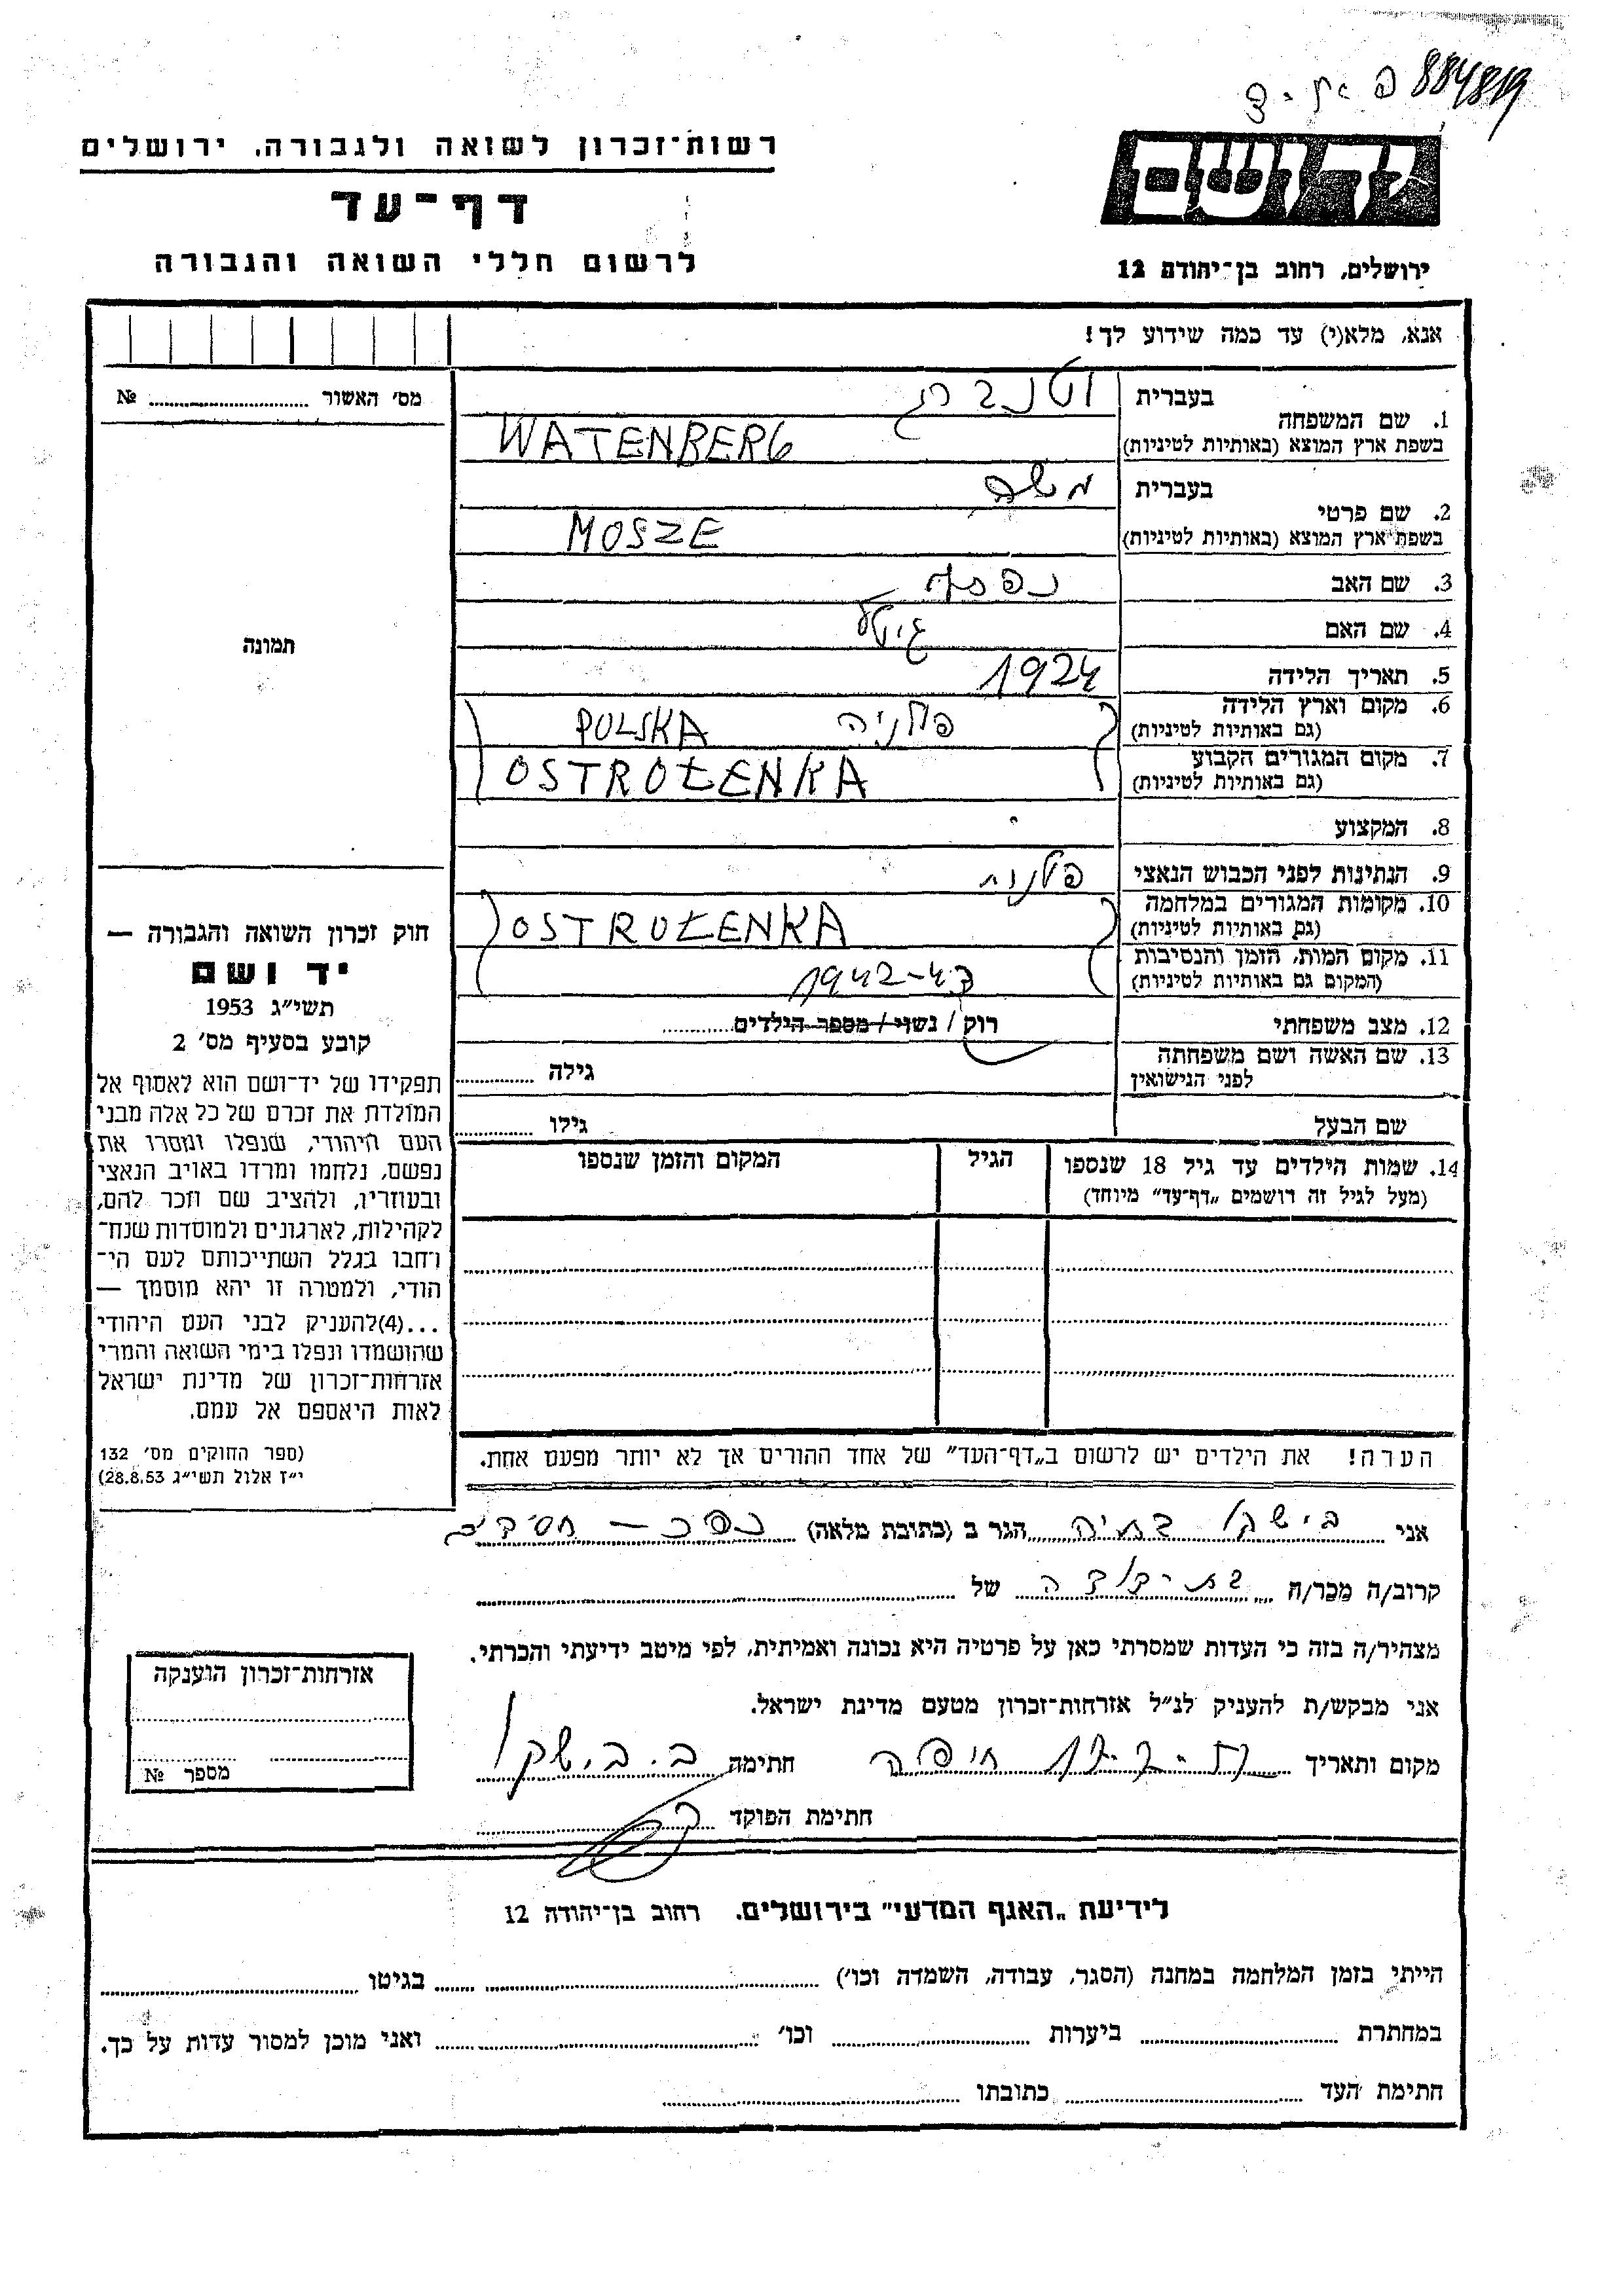 884819
רשות־זכרון לשואה ולגבורה. ירושלים
דף־עד
לרשום חללי השואה והגבורה
יד ושם
ירושלים, רחוב בן־יהודה 12
אנא, מלא(י) עד כמה שידוע לך!
מס׳ האשור № 
תמונה
1. שם המשפחה בעברית וטנברג
בשפת ארץ המוצא (באותיות לטיניות) WATENBERG
2. שם פרטי בעברית משה
בשפת ארץ המוצא (באותיות לטיניות) MOSZE
3. שם האב
4. שם האם
5. תאריך הלידה 1924
6. מקום וארץ הלידה פולניה POLSKA
(גם באותיות לטיניות)
7. מקום המגורים הקבוע OSTROŁENKA
(גם באותיות לטיניות)
8. המקצוע
9. הנתינות לפני הכבוש הנאצי פולנית
10. מקומות המגורים במלחמה OSTROŁENKA
(גם באותיות לטיניות)
11. מקום המות, הזמן והנסיבות 1942-43
(המקום גם באותיות לטיניות)
12. מצב משפחתי רוק / נשוי / מספר הילדים
13. שם האשה ושם משפחתה גילה
לפני הנישואין
שם הבעל גילו
14. שמות הילדים עד גיל 18 שנספו הגיל המקום והזמן שנספו
(מעל לגיל זה רושמים „דף־עד״ מיוחד)
חוק זכרון השואה והגבורה —
יד ושם
תשי״ג 1953
קובע בסעיף מס׳ 2
תפקידו של יד־ושם הוא לאסוף אל
המולדת את זכרם של כל אלה מבני
העם היהודי, שנפלו ומסרו את
נפשם, נלחמו ומרדו באויב הנאצי
ובעוזריו, ולהציב שם וזכר להם,
לקהילות, לארגונים ולמוסדות שנח־
רחבו בגלל השתייכותם לעם הי־
הודי, ולמטרה זו יהא מוסמך —
...(4)להעניק לבני העם היהודי
שהושמדו ונפלו בימי השואה והמרי
אזרחות־זכרון של מדינת ישראל
לאות היאספם אל עמם.
(ספר החוקים מס׳ 132
י״ז אלול תשי״ג 28.8.53)
הערה! את הילדים יש לרשום ב„דף־העד״ של אחד ההורים אך לא יותר מפעם אחת.
אני הגר ב (כתובת מלאה)
קרוב/ה מכר/ה בת-דודה של
מצהיר/ה בזה כי העדות שמסרתי כאן על פרטיה היא נכונה ואמיתית, לפי מיטב ידיעתי והכרתי.
אני מבקש/ת להעניק לנ״ל אזרחות־זכרון מטעם מדינת ישראל.
מקום ותאריך חיפה חתימה
חתימת הפוקד
אזרחות־זכרון הוענקה
מספר №
לידיעת „האגף המדעי״ בירושלים. רחוב בן־יהודה 12
הייתי בזמן המלחמה במחנה (הסגר, עבודה, השמדה וכו׳) בגיטו
במחתרת ביערות וכו׳ ואני מוכן למסור עדות על כך.
חתימת העד כתובתו